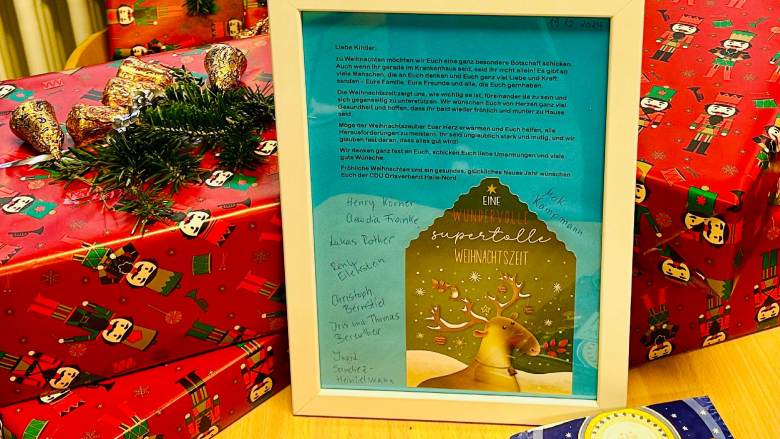 19.12.2024
Liebe Kinder,
zu Weihnachten möchten wir Euch eine ganz besondere Botschaft schicken.
Auch wenn ihr gerade im Krankenhaus seid, seid ihr nicht allein! Es gibt so
viele Menschen, die an Euch denken und Euch ganz viel Liebe und Kraft
senden – Eure Familie, Eure Freunde und alle, die Euch gernhaben.
Die Weihnachtszeit zeigt uns, wie wichtig es ist, füreinander da zu sein und
sich gegenseitig zu unterstützen. Wir wünschen Euch von Herzen ganz viel
Gesundheit und hoffen, dass ihr bald wieder fröhlich und munter zu Hause
seid.
Möge der Weihnachtszauber Euer Herz erwärmen und Euch helfen, alle
Herausforderungen zu meistern. Ihr seid unglaublich stark und mutig, und wir
glauben fest daran, dass alles gut wird!
Wir denken ganz fest an Euch, schicken Euch liebe Umarmungen und viele
gute Wünsche.
Fröhliche Weihnachten und ein gesundes, glückliches Neues Jahr wünschen
Euch der CDU Ortsverband Halle-Nord
Henry Körner
Claudia Franke
Lukas Rother
Christoph
Bernstiel
Iris und Thomas
Ingrid
Sanchez-
Kampmann
EINE
WUNDERVOLLE
supertolle
WEIHNACHTSZEIT